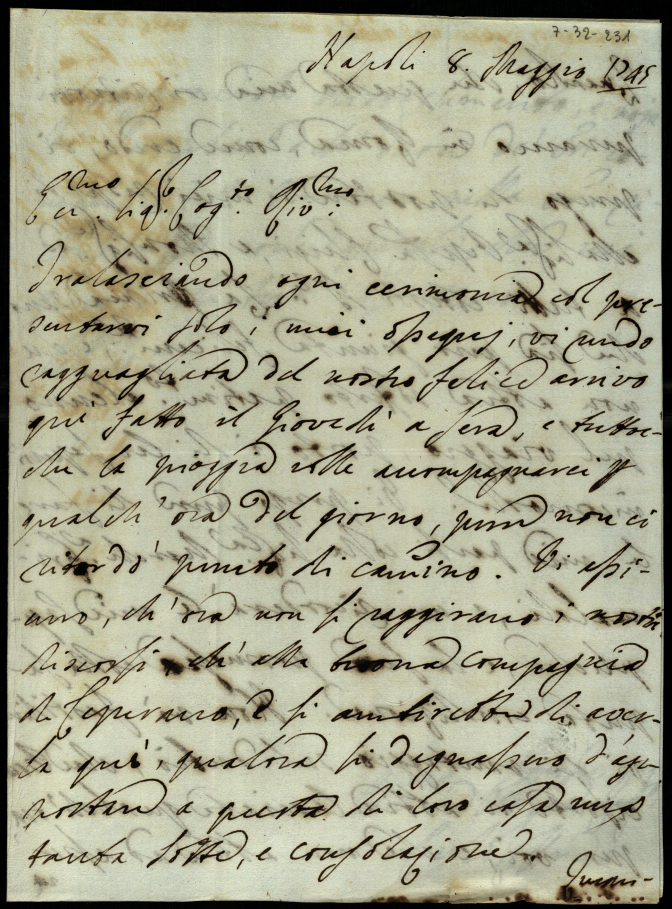 7-32-231
Napoli 8. Maggio 1745
Ecc.mo Sig.r Cog.to Riv.mo:
Tralasciando ogni cerimonia col pre-
sentarvi solo i miei ossequj, vi rendo
ragguagliata del nostro felice arrivo
quì fatto il Giovedì a sera, e tutto-
che la pioggia volle accompagnarci p
qualch' ora del giorno, pure non ci
ritardò punto di camino. Vi assi-
curo, ch' ora non si raggirano i nostri
discorsi, ch' alla buona compagnia
di Ceperano, e si ambirebbe di aver-
la quì, qualora si degnassero d'ap-
portare a questa di loro casa una
tanta sorte, e consolazione.